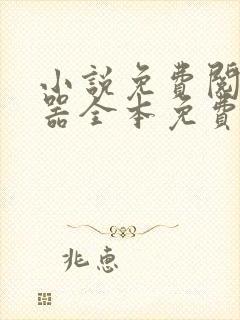 小說免費閱
器全本免費
兆惠